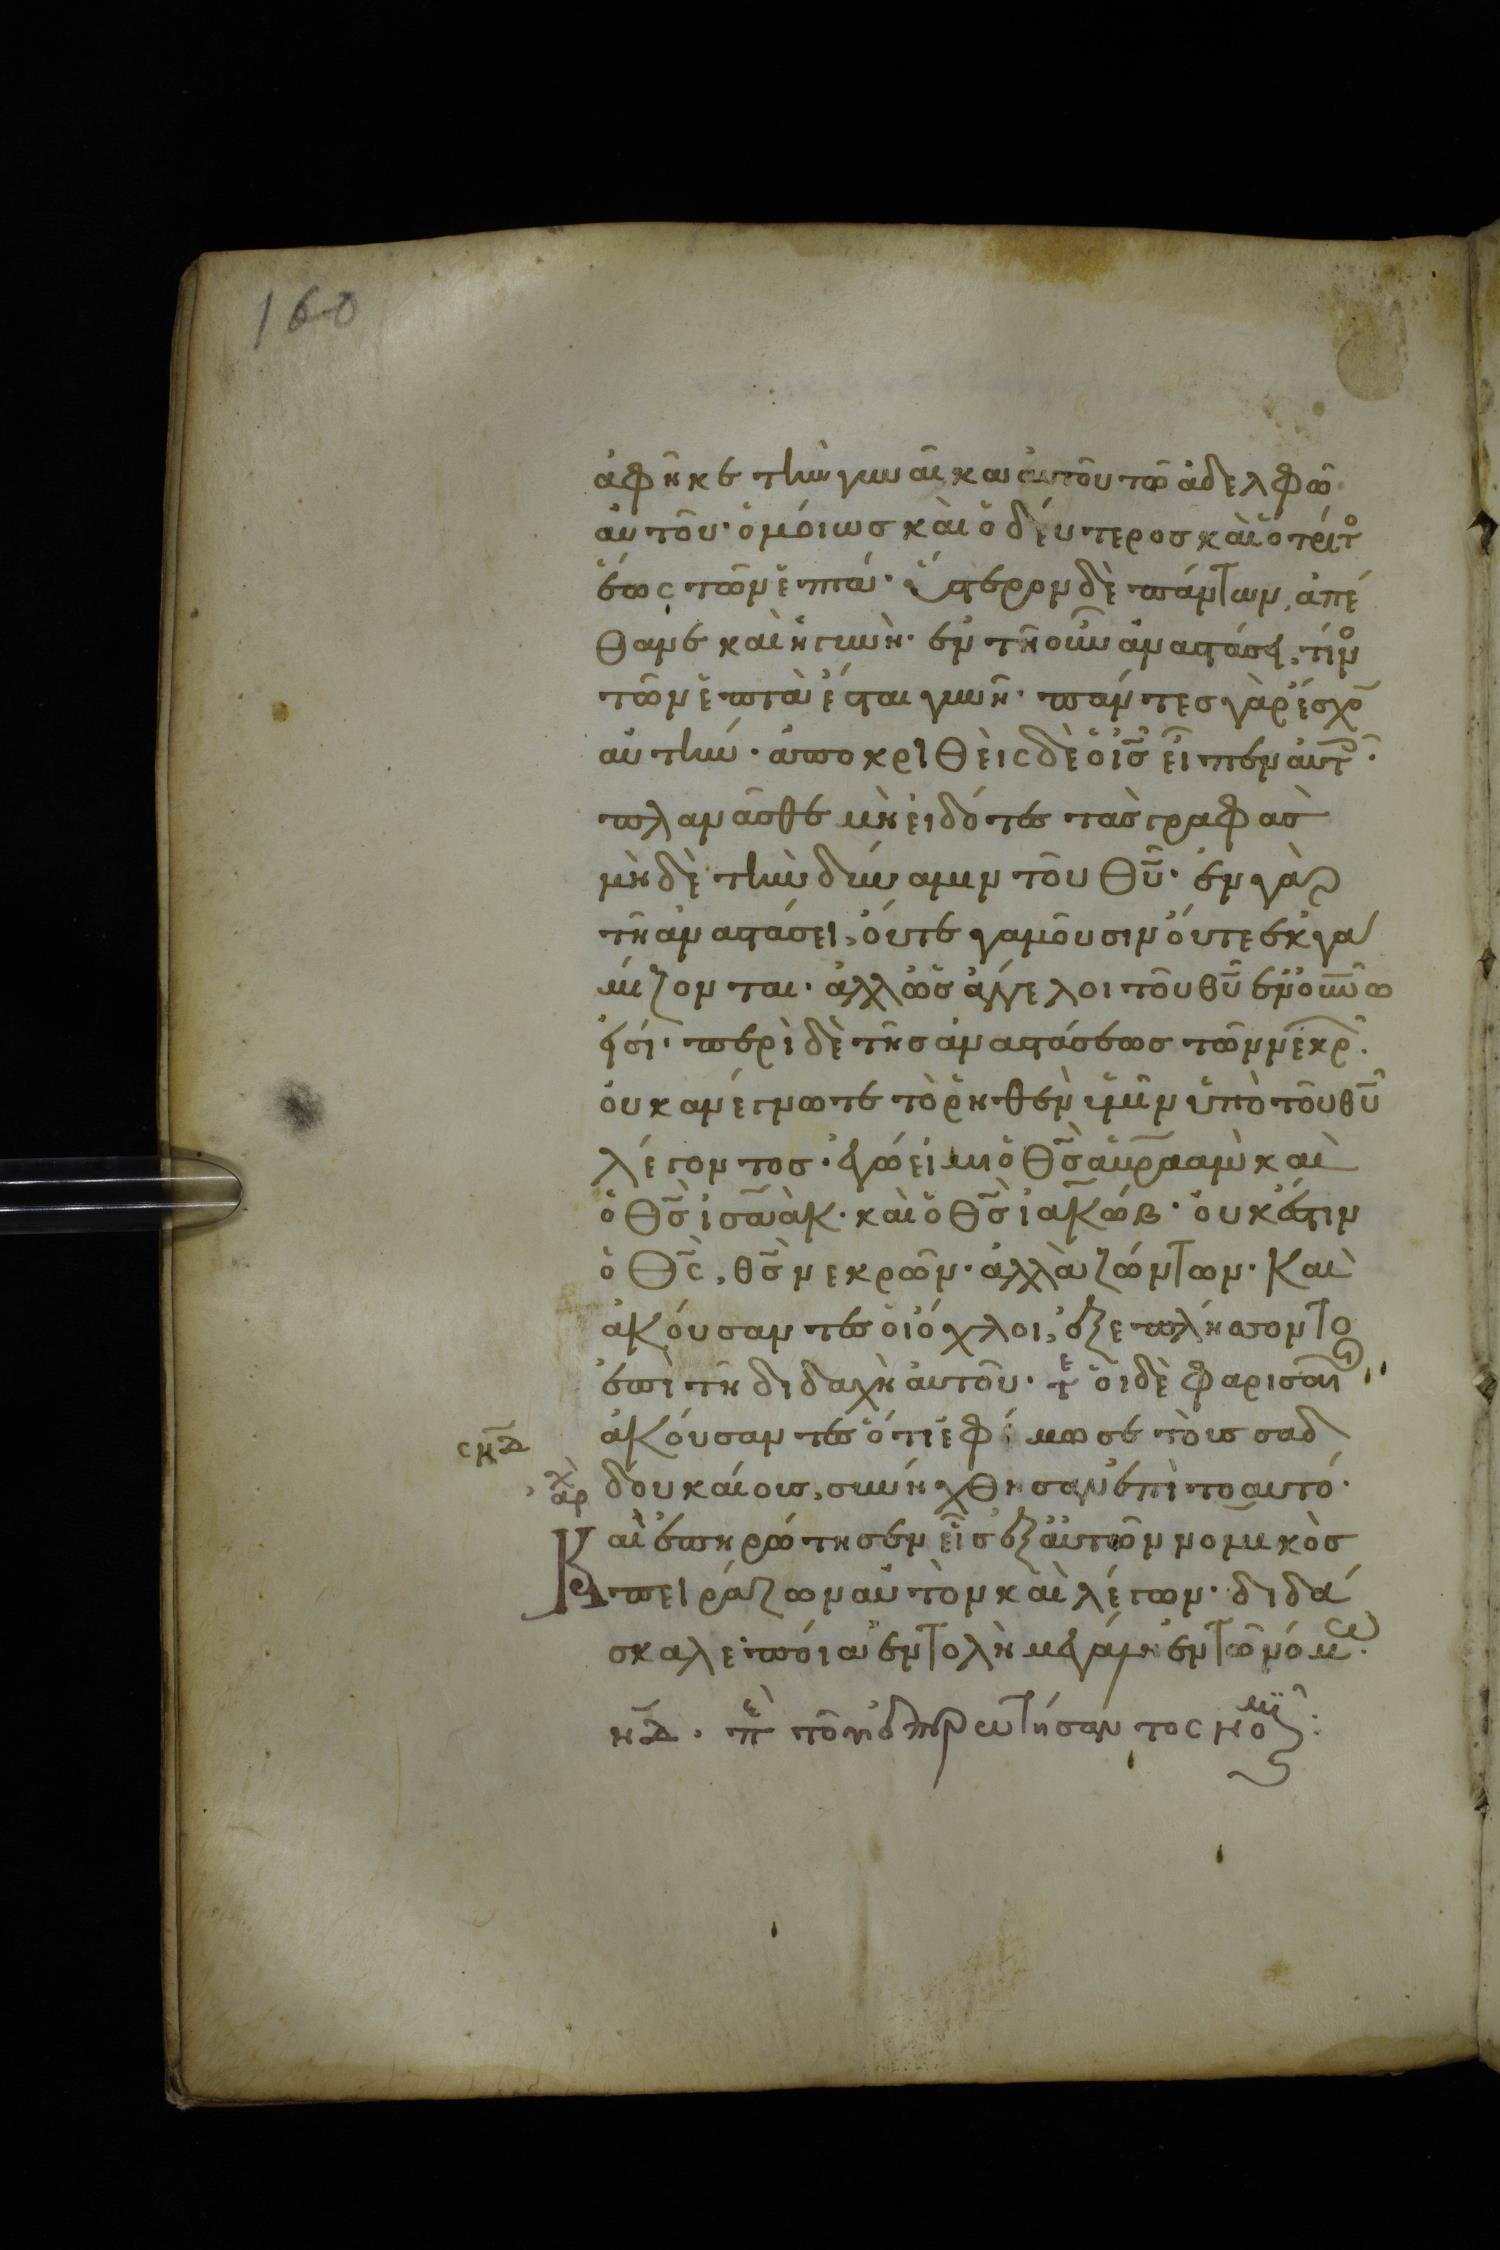 160
ἀφῆκε τὴν γυναῖκα αὐτοῦ τῶ ἀδελφῶ
αὐτοῦ· ὁμοίως καὶ ὁ δεύτερος καὶ ὁ τρίτο
ἕως τῶν ἑπτά· ὕστερον δὲ πάντων, ἀπέ
θανε καὶ ἡ γυνὴ· ἐν τῆ οὖν ἀναστάσει, τίνο
τῶν ἑπτὰ ἔσται γυνῆ· πάντες γὰρ ἔσχο
αὐτήν· ἀποκριθεὶς δὲ ὁ ις εἶπεν αὐτ·
πλανᾶσθε μὴ εἰδότες τὰς γραφὰς
μὴδὲ τὴν δύναμιν τοῦ θυ· ἐν γὰρ
τῆ ἀναστάσει, οὔτε γαμοῦσιν οὔτε ἐκγα
μίζονται· ἀλλ' ὡς ἄγγελοι τοῦ θυ ἐν οὐνω
εἰσί· περὶ δὲ τῆς ἀναστάσεως τῶν νεκρ·
οὐκ ἀνέγνωτε τὸ ῥηθὲν ὑμῖν ὑπὸ τοῦ θυ
λέγοντος· ἐγώ εἰμι ὁ θς ἀβραὰμ καὶ
ὁ θς ἰσαὰκ· καὶ ὁ θς ἰακώβ· οὐκ ἔστιν
ὁ θς, θς νεκρῶν· ἀλλὰ ζώντων· Καὶ
ἀκούσαντες οἱ ὄχλοι, ἐξεπλήσσοντο
ἐπὶ τῆ διδαχὴ αὐτοῦ· τε οἱ δὲ φαρισαῖοι
ἀκούσαντες ὅτι ἐφίμωσε τοὺς σαδ
δουκαίους, συνήχθησαν ἐπὶ τὸ αυτό·
Καὶ ἐπηρώτησεν εἷς ἐξ αὐτῶν νομικὸς
πειράζων αὐτὸν καὶ λέγων· διδά
σκαλε· ποία ἐντολὴ μεγάλη ἐν τῶ νόμω·